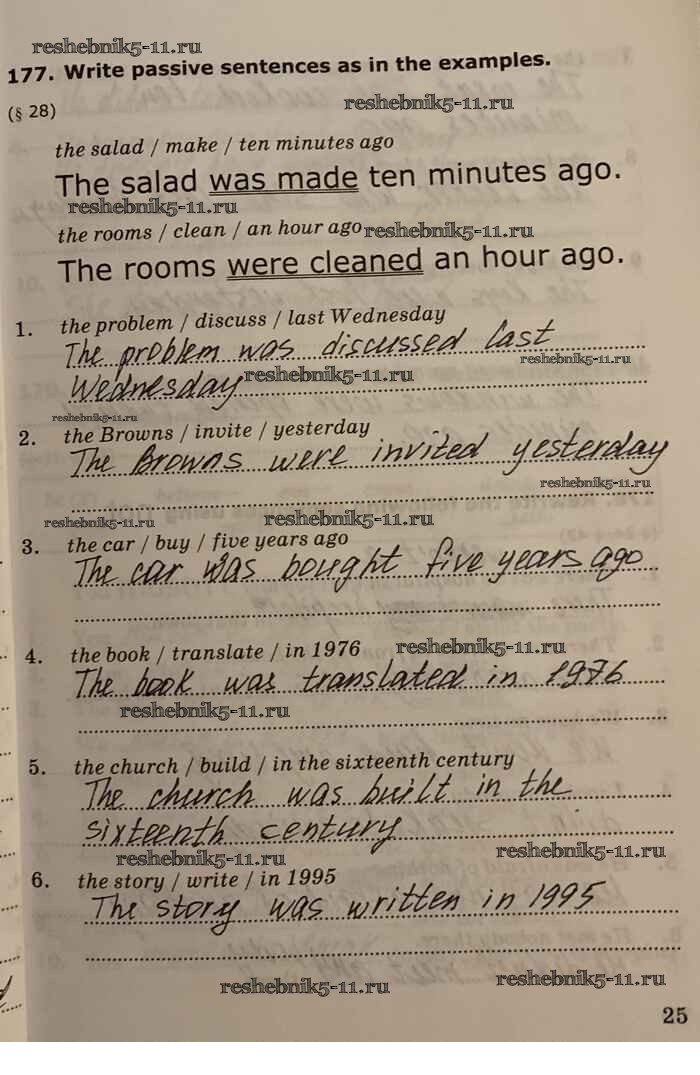 reshebnik5-11.ru
177. Write passive sentences as in the examples.
(§ 28)
reshebnik5-11.ru
the salad / make / ten minutes ago
The salad was made ten minutes ago.
reshebnik5-11.ru
the rooms / clean / an hour ago reshebnik5-11.ru
The rooms were cleaned an hour ago.
1. the problem / discuss / last Wednesday
The problem was discussed last
reshebnik5-11.ru
Wednesday reshebnik5-11.ru
reshebnik5-11.ru
2. the Browns / invite / yesterday
The Browns were invited yesterday
reshebnik5-11.ru
reshebnik5-11.ru reshebnik5-11.ru
3. the car / buy / five years ago
The car was bought five years ago
4. the book / translate / in 1976 reshebnik5-11.ru
The book was translated in 1976
reshebnik5-11.ru
5. the church / build / in the sixteenth century
The church was built in the
sixteenth century
reshebnik5-11.ru reshebnik5-11.ru
6. the story / write / in 1995
The story was written in 1995
reshebnik5-11.ru reshebnik5-11.ru
25